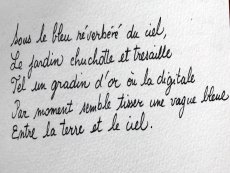 Sous le bleu réverbéré du ciel,
Le jardin chuchotte et tresaille
Tel un gradin d'or où la digitale
Par moment semble tisser une vague bleue
Entre la terre et le ciel.